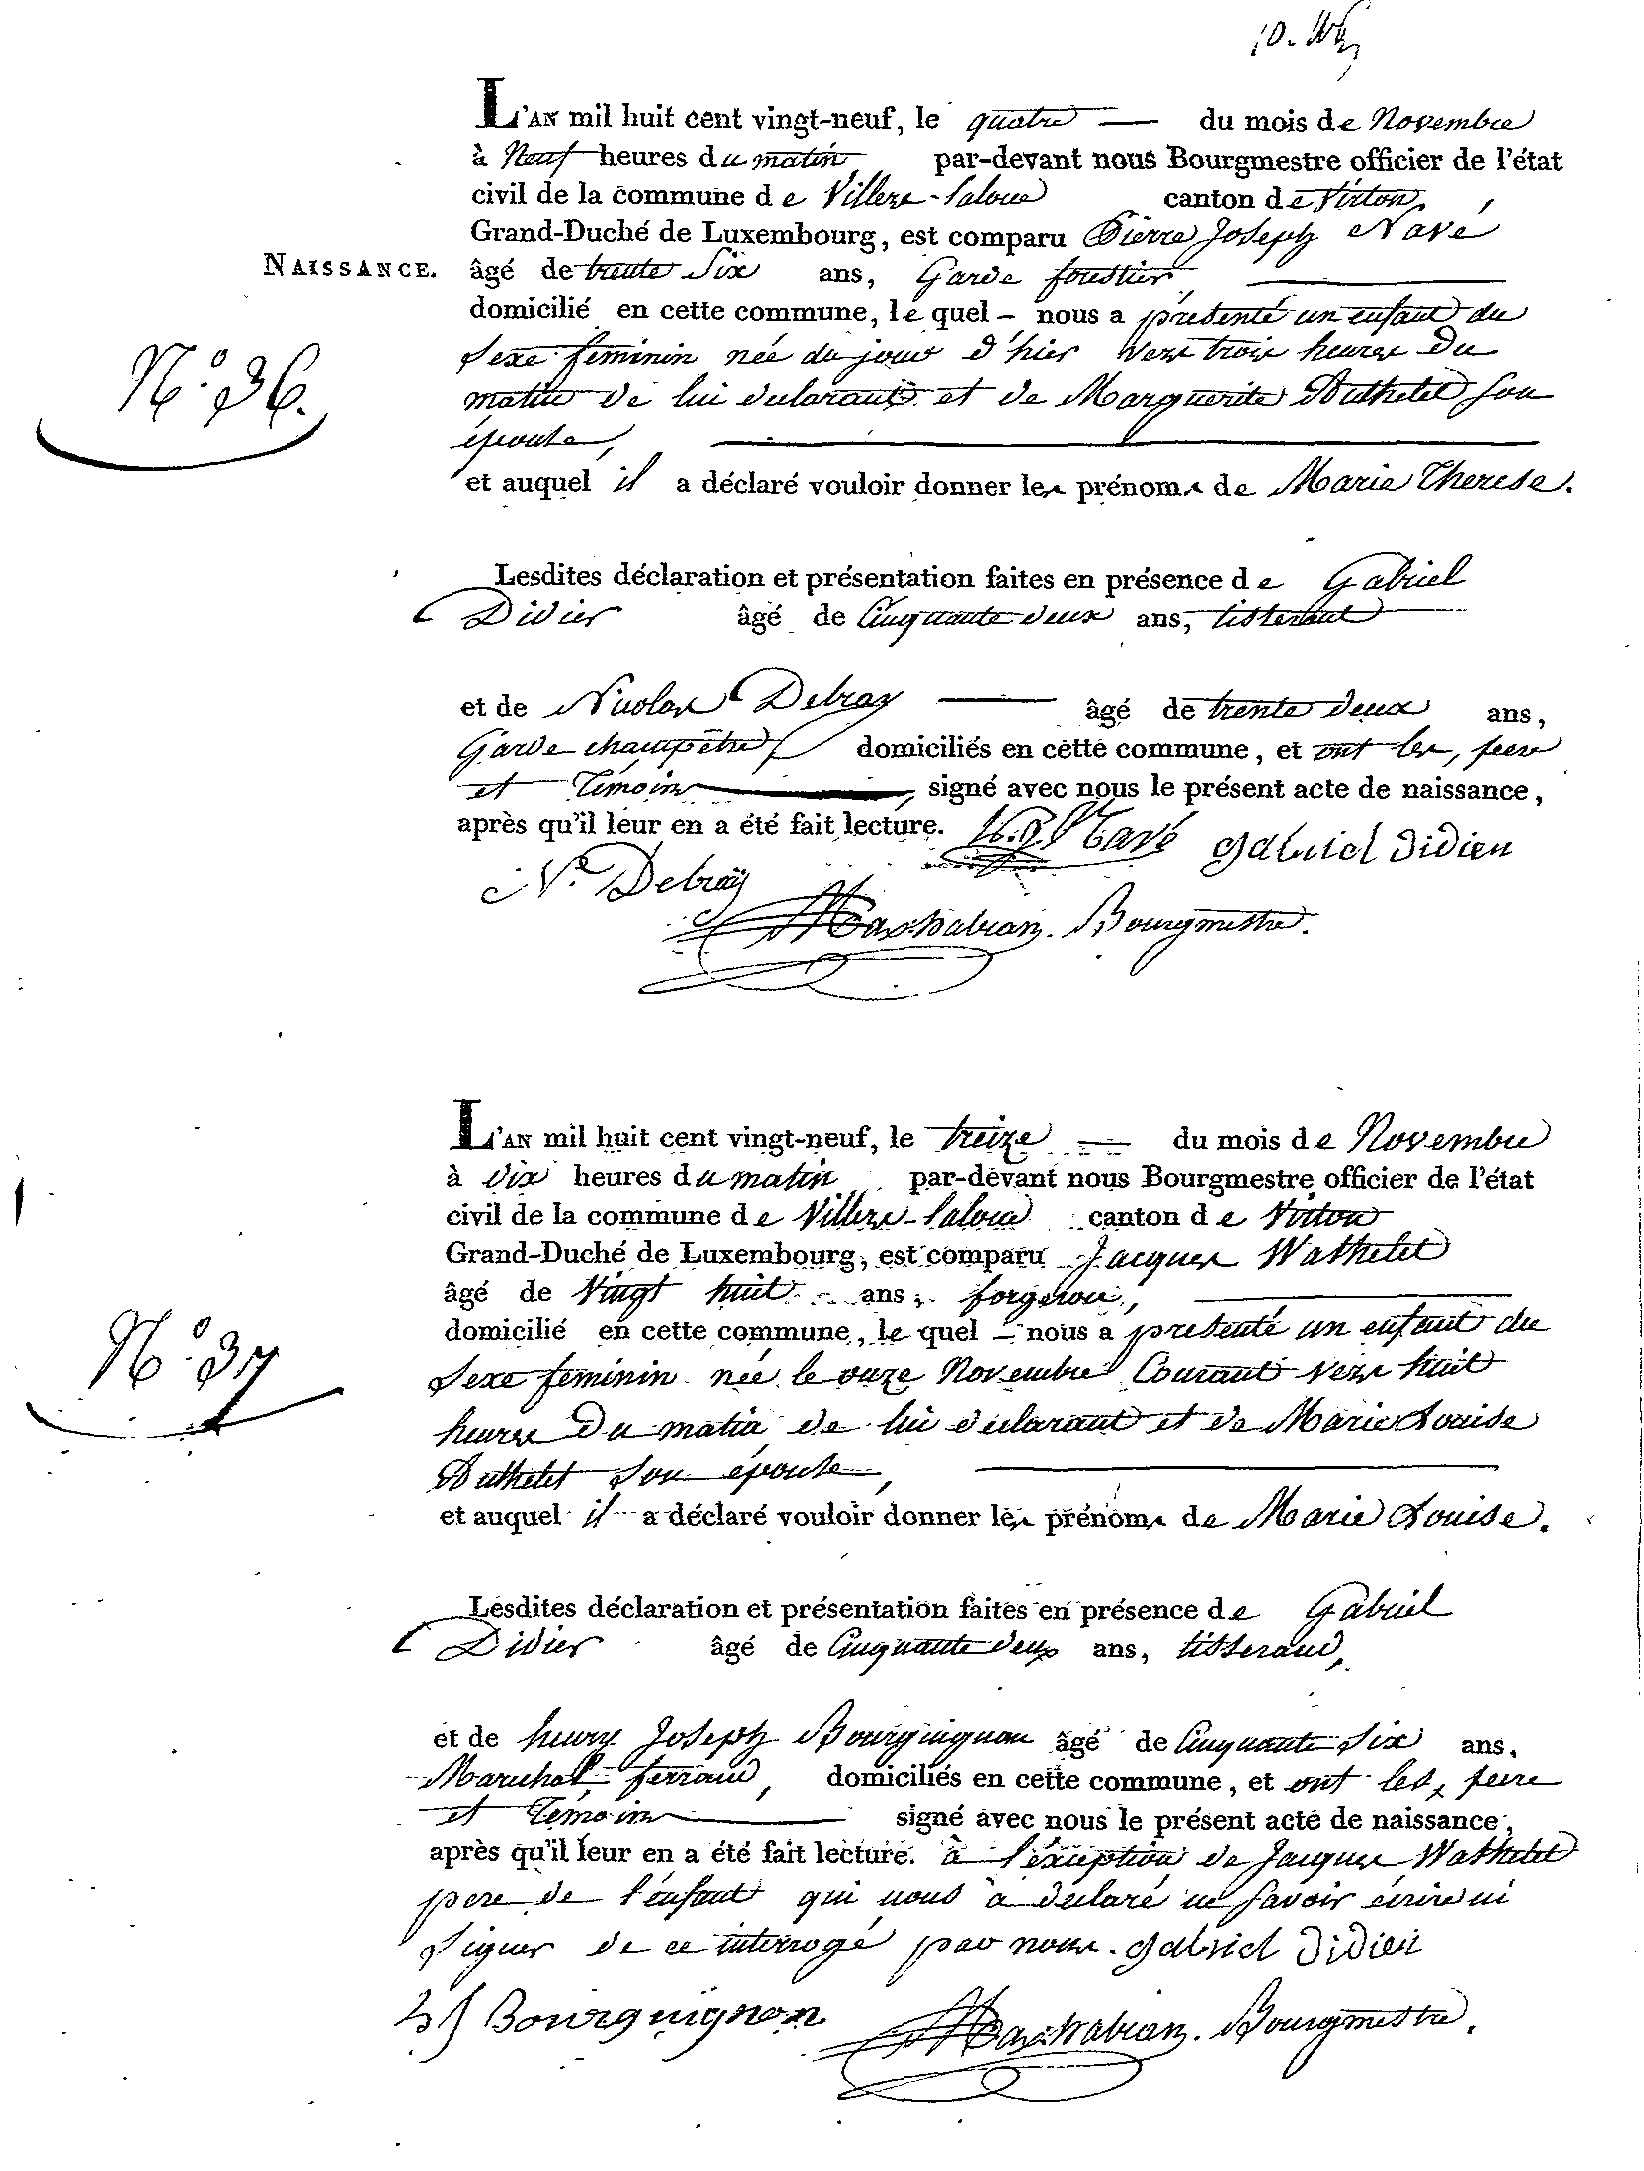 L'AN mil huit cent vingt-neuf, le quatre — du mois de Novembre
à Neuf heures du matin par-devant nous Bourgmestre officier de l'état
civil de la commune de Villers-laloue canton de Virton,
Grand-Duché de Luxembourg, est comparu Pierre Joseph Navé
NAISSANCE. âgé de trente Six ans, Garde forestier,
domicilié en cette commune, le quel – nous a présenté un enfant du
N.o 36. Sexe feminin née du jour d'hier vers trois heures Du
matin de lui declarant et de Marguerite Duthelet son
épouse,
et auquel il a déclaré vouloir donner les prénoms de Marie Therese.
Lesdites déclaration et présentation faites en présence de Gabriel
Didier âgé de Cinquante deux ans, tisserant
et de Nicolas Debray — âgé de trente deux ans,
Garde champêtre, domiciliés en cette commune, et ont les, peere
et Témoins, signé avec nous le présent acte de naissance,
après qu'il leur en a été fait lecture. Navé gabriel didier
N.e Debraÿ
Bourgmestre.
L'AN mil huit cent vingt-neuf, le treize — du mois de Novembre
à dix heures du matin par-devant nous Bourgmestre officier de l'état
civil de la commune de Villers-laloue canton de Virton
Grand-Duché de Luxembourg, est comparu Jacques Wathelet
âgé de Vingt huit ans, forgeron,
domicilié en cette commune, le quel – nous a presenté un enfant du
N.o 37 Sexe feminin née le onze Novembre Courant vers huit
heures Du matin de lui declarant et de Marie Louise
Duthelet Son épouse,
et auquel il a déclaré vouloir donner les prénoms de Marie Louise.
Lesdites déclaration et présentation faites en présence de Gabriel
Didier âgé de Cinquante deux ans, tisserand,
et de henry Joseph Bourguignon âgé de Cinquante Six ans,
Marechal ferrand, domiciliés en cette commune, et ont les, peere
et Témoins signé avec nous le présent acte de naissance,
après qu'il leur en a été fait lecture. à l'exception de Jacques Wathelet
pere de l'enfant qui nous a déclaré ne savoir écrire ni
Signer de ce interrogé par nous. gabriel didier
hJ Bourguignon Bourgmestre.